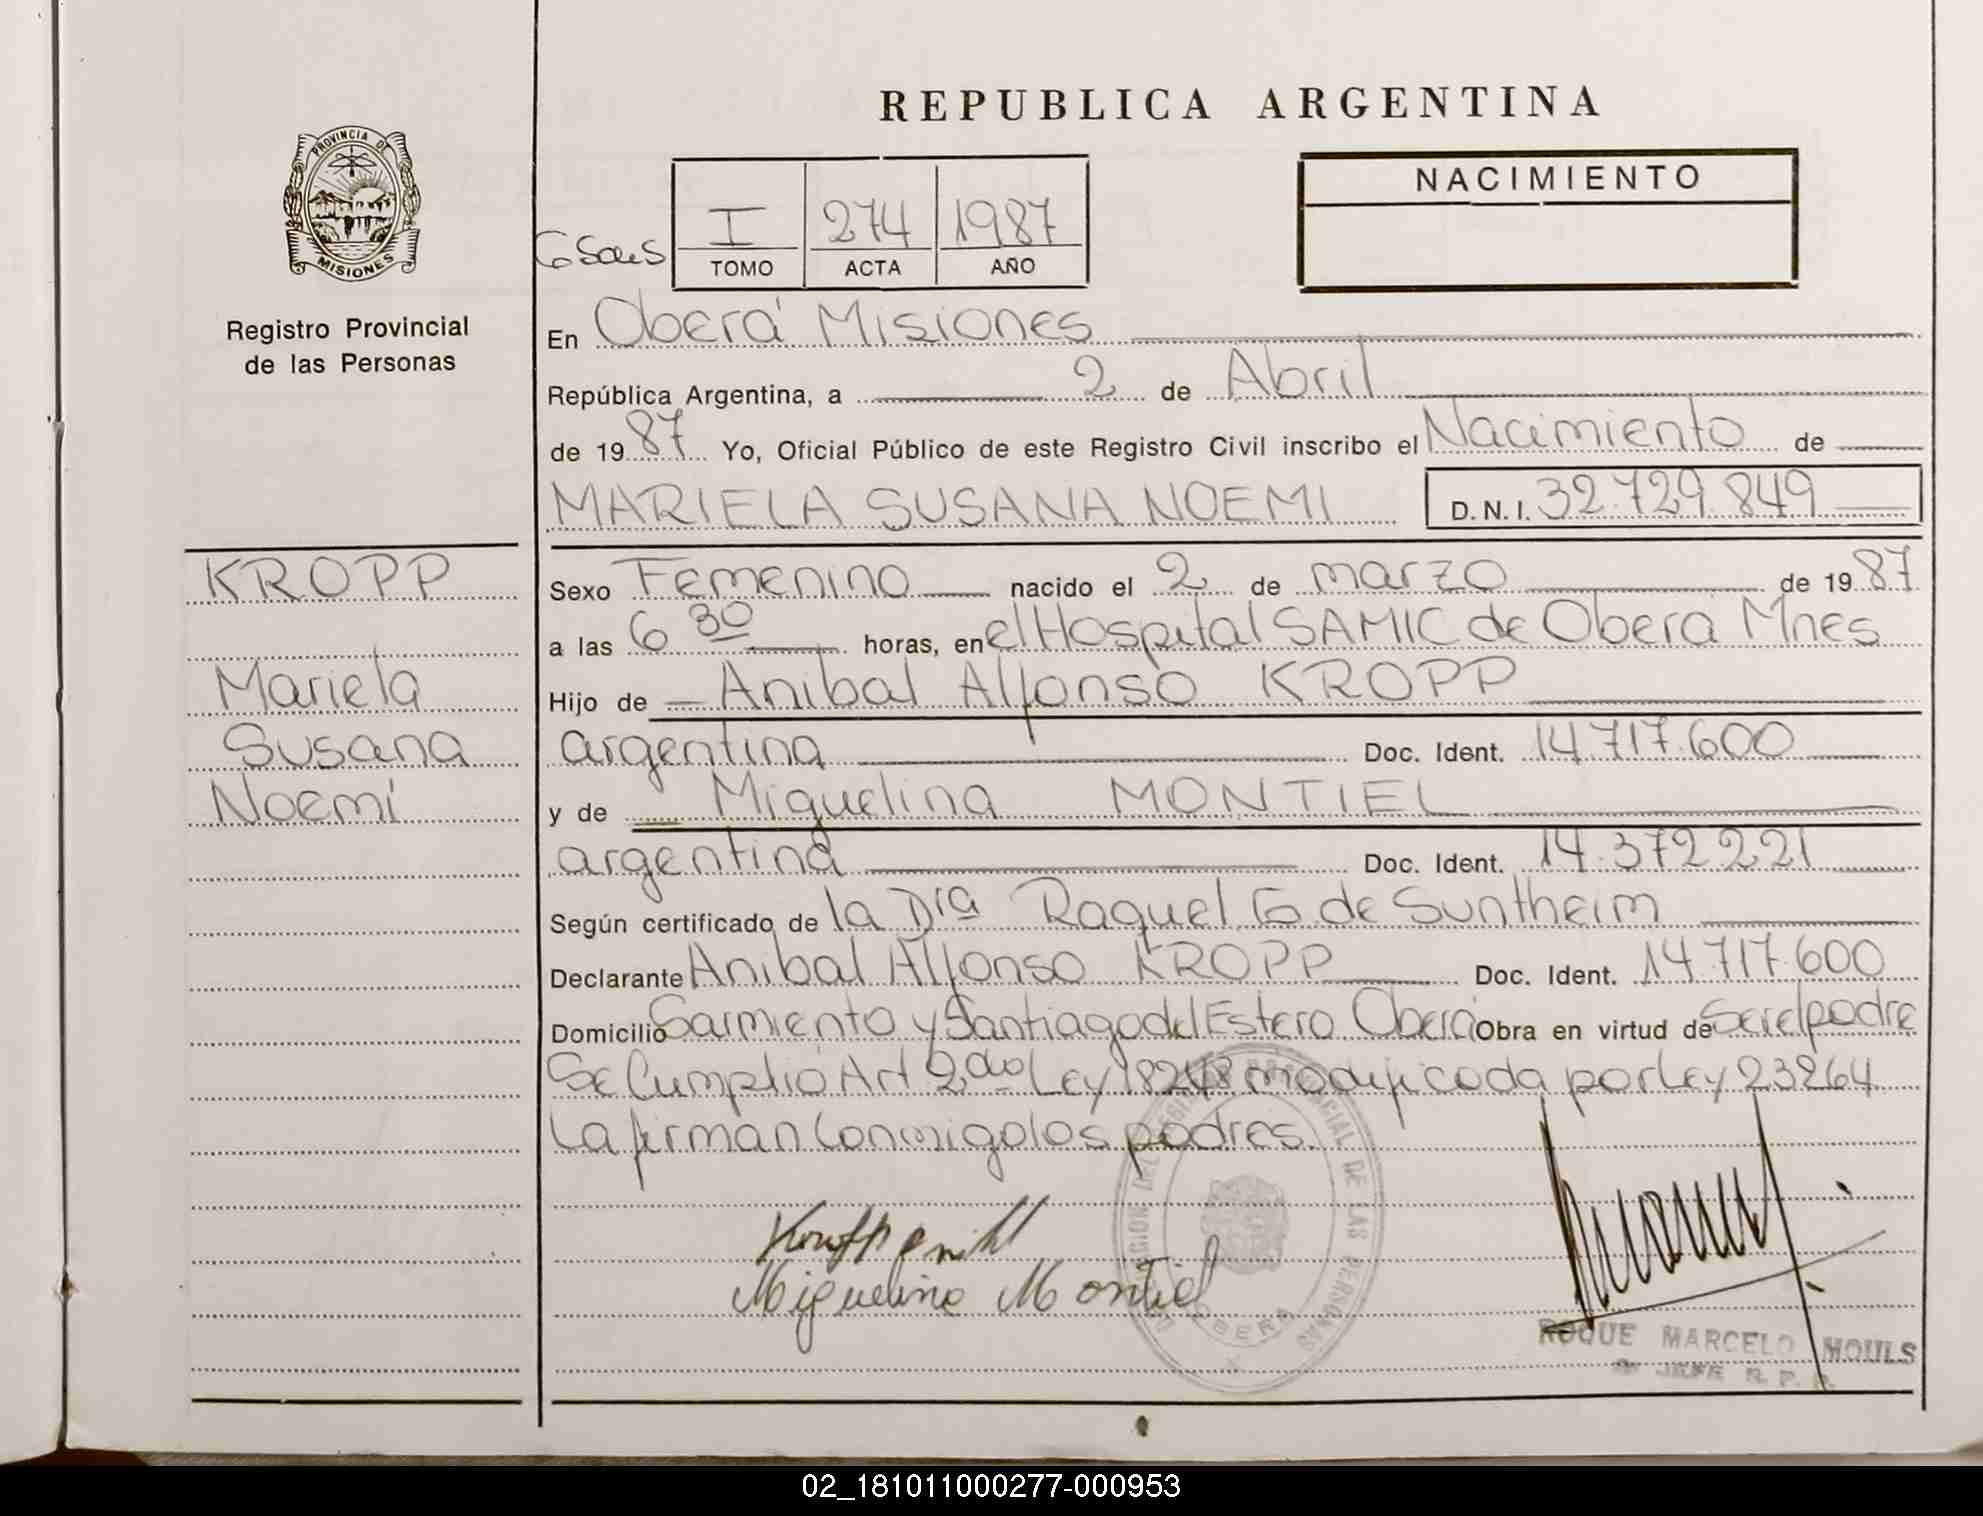 REPUBLICA ARGENTINA
PROVINCIA DE
MISIONES
Registro Provincial
de las Personas
I 274 1987
TOMO ACTA AÑO
NACIMIENTO
En Oberá Misiones
República Argentina, a 2 de Abril
de 1987 Yo, Oficial Público de este Registro Civil inscribo el Nacimiento de
MARIELA SUSANA NOEMI D.N.I. 32.729.849
KROPP
Mariela
Susana
Noemí
Sexo Femenino nacido el 2 de marzo de 1987
a las 6 30 horas, en el Hospital SAMIC de Oberá Mnes
Hijo de Anibal Alfonso KROPP
argentina Doc. Ident. 14.717.600
y de Miguelina MONTIEL
argentina Doc. Ident. 14.372.221
Según certificado de la Dra Raquel G de Suntheim
Declarante Anibal Alfonso KROPP Doc. Ident. 14.717.600
Domicilio Sarmiento y Santiago del Estero Oberá Obra en virtud de Ser el padre
Se Cumplió Art 2do Ley 18248 modificada por Ley 23264
La firman Conmigo los padres.
Miguelina Montiel
OBERA
ROQUE MARCELO MOULS
JEFE R. P. P.
02_181011000277-000953